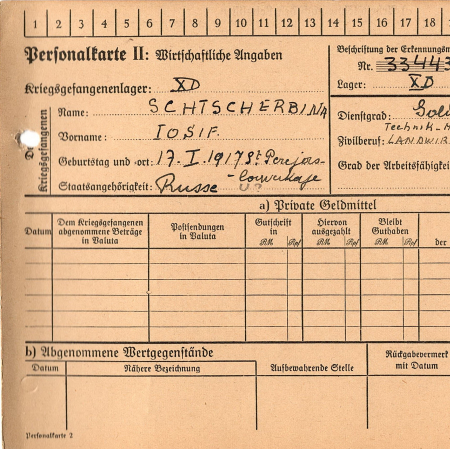 1 2 3 4 5 6 7 8 9 10 11 12 13 14 15 16 17 18
Personalkarte II: Wirtschaftliche Angaben
Beschriftung der Erkennungsm
Nr. 33443
Kriegsgefangenenlager: XD
Lager: XD
Des Kriegsgefangenen
Name: SCHTSCHERBINA
Vorname: IOSIF.
Dienstgrad: Sol
Technik-
Geburtstag und -ort: 17.I.1917 St Perejas-
Zivilberuf: LANDWIR
Staatsangehörigkeit: Russe
Grad der Arbeitsfähigkeit
a) Private Geldmittel
Datum
Dem Kriegsgefangenen abgenommene Beträge in Valuta
Postsendungen in Valuta
Gutschrift in
RM Rpf
Hiervon ausgezahlt
RM Rpf
Bleibt Guthaben
RM Rpf
der
b) Abgenommene Wertgegenstände
Datum
Nähere Bezeichnung
Aufbewahrende Stelle
Rückgabevermerk mit Datum
Personalkarte 2